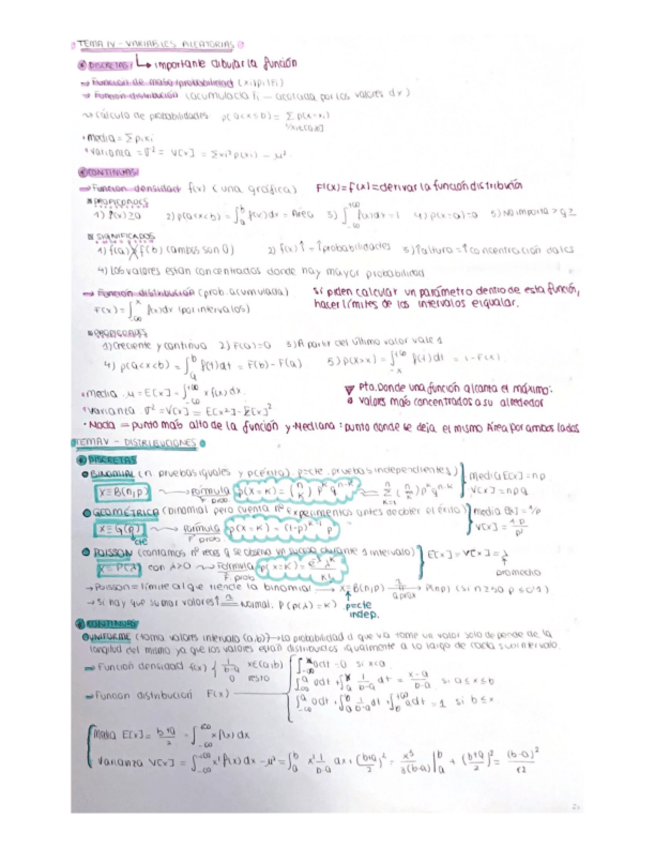 TEMA IV - VARIABLES ALEATORIAS
DISCRETAS: ↳ importante tabular la función
→ Función de masa (probabilidad) (xi, pi)
→ Función distribución (acumulada Fi - acotada por los valores d x)
→ cálculo de probabilidades p(a<x≤b) = Σ p(x=xi)
• media = Σ pixi
• varianza = σ² = V[x] = Σ xi² p(xi) - μ²
CONTINUAS:
→ Función densidad f(x) (una gráfica) F'(x) = f(x) = derivar la función distribución
PROPIEDADES
1) f(x) ≥ 0 2) p(a<x<b) = ∫ₐᵇ f(x)dx = Área 3) ∫₋∞⁺∞ f(x)dx = 1 4) p(x=a) = 0 5) No importa > o ≥
SIGNIFICADOS
1) f(a) f(b) (ambos son 0) 2) f(x)↑ - ↑probabilidades 3) ↑altura = ↑concentración datos
4) Los valores están concentrados donde hay mayor probabilidad
→ Función distribución (prob. acumulada) Si piden calcular un parámetro dentro de esta función,
F(x) = ∫₋∞ˣ f(x)dx (por intervalos) hacer límites de los intervalos e igualar.
PROPIEDADES
1) Creciente y continua 2) F(a) = 0 3) A partir del último valor vale 1
4) p(a<x<b) = ∫ₐᵇ f(t)dt = F(b) - F(a) 5) P(x>x) = ∫ f(t)dt = 1 - F(x).
• media μ = E[x] = ∫₋∞⁺∞ x f(x)dx. Pto. Donde una función alcanza el máximo:
• varianza σ² = V[x] = E[x²] - E[x]² valores más concentrados a su alrededor
• Moda = punto más alto de la función y Mediana: punto donde se deja el mismo Área por ambos lados
TEMA V - DISTRIBUCIONES
DISCRETAS
BINOMIAL (n pruebas iguales y p(éxito) p=cte. pruebas independientes) media E[x] = np
X≡B(n,p) → Fórmula F. prob p(x=k) = (n k) pᵏ qⁿ⁻ᵏ = Σ (n k) pᵏ qⁿ⁻ᵏ V[x] = npq
GEOMÉTRICA (binomial pero cuenta nº experimentos antes de obtener el éxito) media E[x] = 1/p
X≡G(p) → Fórmula F. prob p(x=k) = (1-p)ᵏ⁻¹ p V[x] = 1-p/p²
cte
POISSON (contamos nº veces q se observa un suceso durante 1 intervalo) E[x] = V[x] = λ
X≡P(λ) con λ>0 → Fórmula F. prob p(x=k) = e⁻λ λᵏ/k! promedio
→ Poisson = límite al que tiende la binomial → X≡B(n,p) → aprox P(np)
→ Si hay que sumar valores↑ ≈ Normal. P(p(λ)=k) p=cte
indep.
CONTINUAS
UNIFORME (toma valores intervalo (a,b)) → La probabilidad d que va tome un valor solo depende de la
longitud del mismo ya que los valores están distribuidos igualmente a lo largo de cada subintervalo.
→ Función densidad f(x) { 1/b-a x∈(a,b) 0 resto ∫ 0dt = 0 si x<a
→ Función distribución F(x) ∫₋∞ᵃ 0dt + ∫ₐˣ 1/b-a dt = x-a/b-a si a≤x≤b
∫₋∞ᵃ 0dt + ∫ₐᵇ 1/b-a dt + ∫ 0dt = 1 si b≤x
Media E[x] = b+a/2 = ∫₋∞⁺∞ x f(x)dx
Varianza V[x] = ∫₋∞⁺∞ x² f(x)dx - μ² = ∫ₐᵇ x² 1/b-a dx + (b+a/2)² = x³/3(b-a) |ₐᵇ + (b+a/2)² = (b-a)²/12